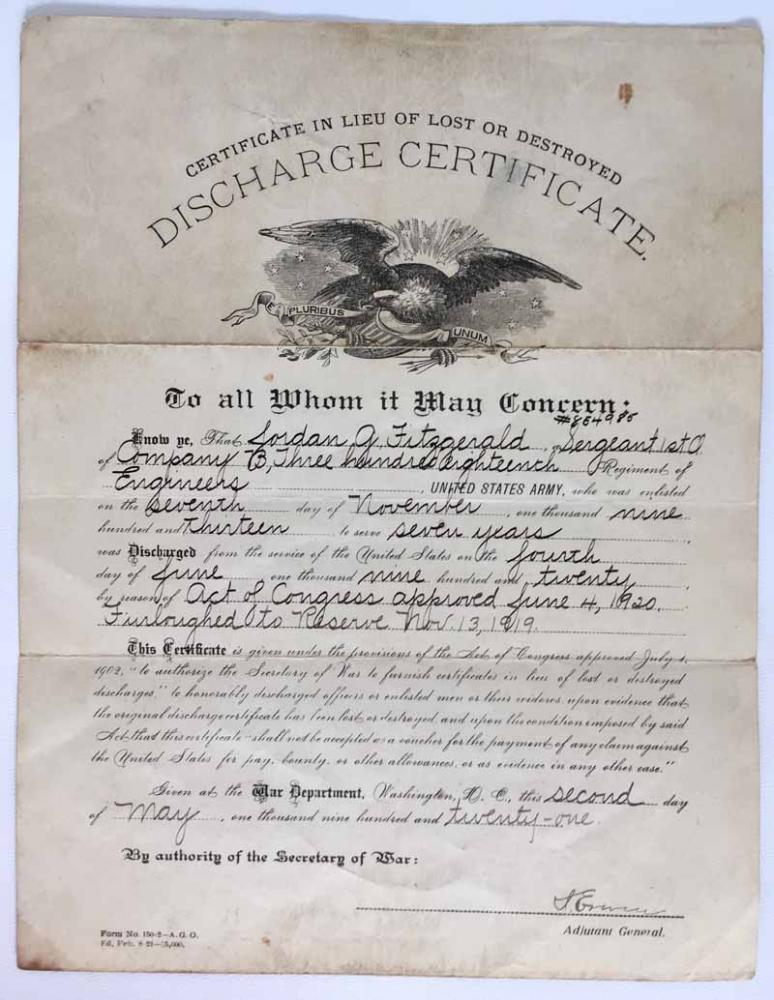 CERTIFICATE IN LIEU OF LOST OR DESTROYED
DISCHARGE CERTIFICATE.
E PLURIBUS UNUM
To all Whom it May Concern:
#864985
Know ye, That Jordan G. Fitzgerald, a Sergeant 1st Cl
of Company B, Three hundred eighteenth Regiment of
Engineers, UNITED STATES ARMY, who was enlisted
on the seventh day of November, one thousand nine
hundred and thirteen to serve seven years,
was Discharged from the service of the United States on the fourth
day of June one thousand nine hundred and twenty,
by reason of Act of Congress approved June 4, 1920.
Furloughed to Reserve Nov. 13, 1919.
This Certificate is given under the provisions of the Act of Congress approved July 1,
1902, "to authorize the Secretary of War to furnish certificates in lieu of lost or destroyed
discharges," to honorably discharged officers or enlisted men or their widows, upon evidence that
the original discharge certificate has been lost or destroyed, and upon the condition imposed by said
Act that this certificate "shall not be accepted as a voucher for the payment of any claim against
the United States for pay, bounty, or other allowances, or as evidence in any other case."
Given at the War Department, Washington, D. C., this second day
of May, one thousand nine hundred and twenty-one.
By authority of the Secretary of War:
Adjutant General.
Form No. 150-2—A. G. O.
Ed. Feb. 8-21—